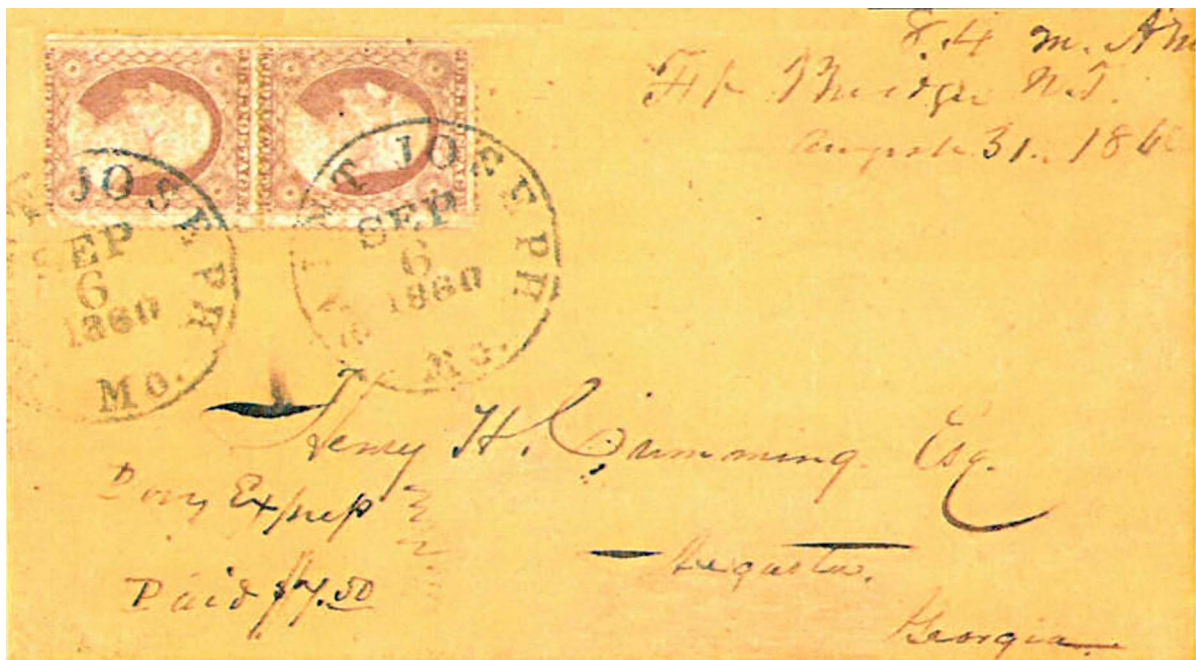 8.4 m. AM
Ft Bridger U.T.
August 31. 1860
SAINT JOSEPH
SEP
6
1860
Mo.
SAINT JOSEPH
SEP
6
1860
Mo.
Henry H. Cumming. Esq.
Pony Express
Augusta.
Paid $7.50
Georgia.